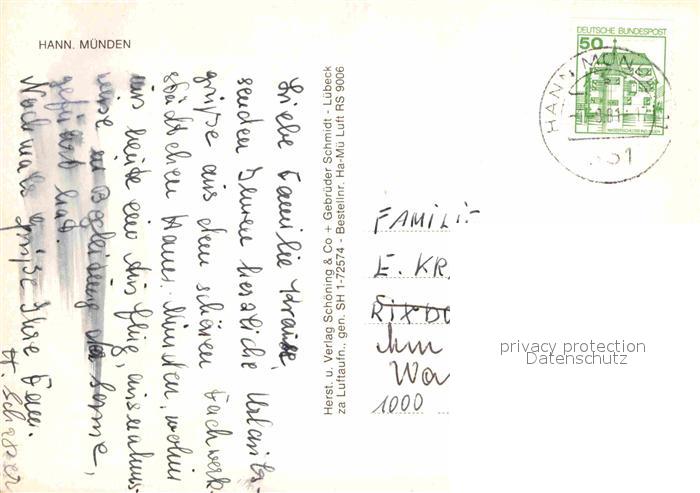 HANN. MÜNDEN
Liebe Familie Krause,
senden Ihnen herzliche Urlaubs-
grüße aus dem schönen Fachwerk-
städtchen Hann. Münden, wohin
uns heute ein Ausflug, ausnahms-
weise in Begleitung der Sonne,
geführt hat.
Nochmals grüße Ihre Fam.
Herst. u. Verlag Schöning & Co + Gebrüder Schmidt - Lübeck
za Luftaufn., gen. SH 1-72574 - Bestellnr. Ha-Mü Luft RS 9006
DEUTSCHE BUNDESPOST
50
HANN MÜND
51
FAMILI
E. KR
RIXDO
Wa
1000
privacy protection
Datenschutz